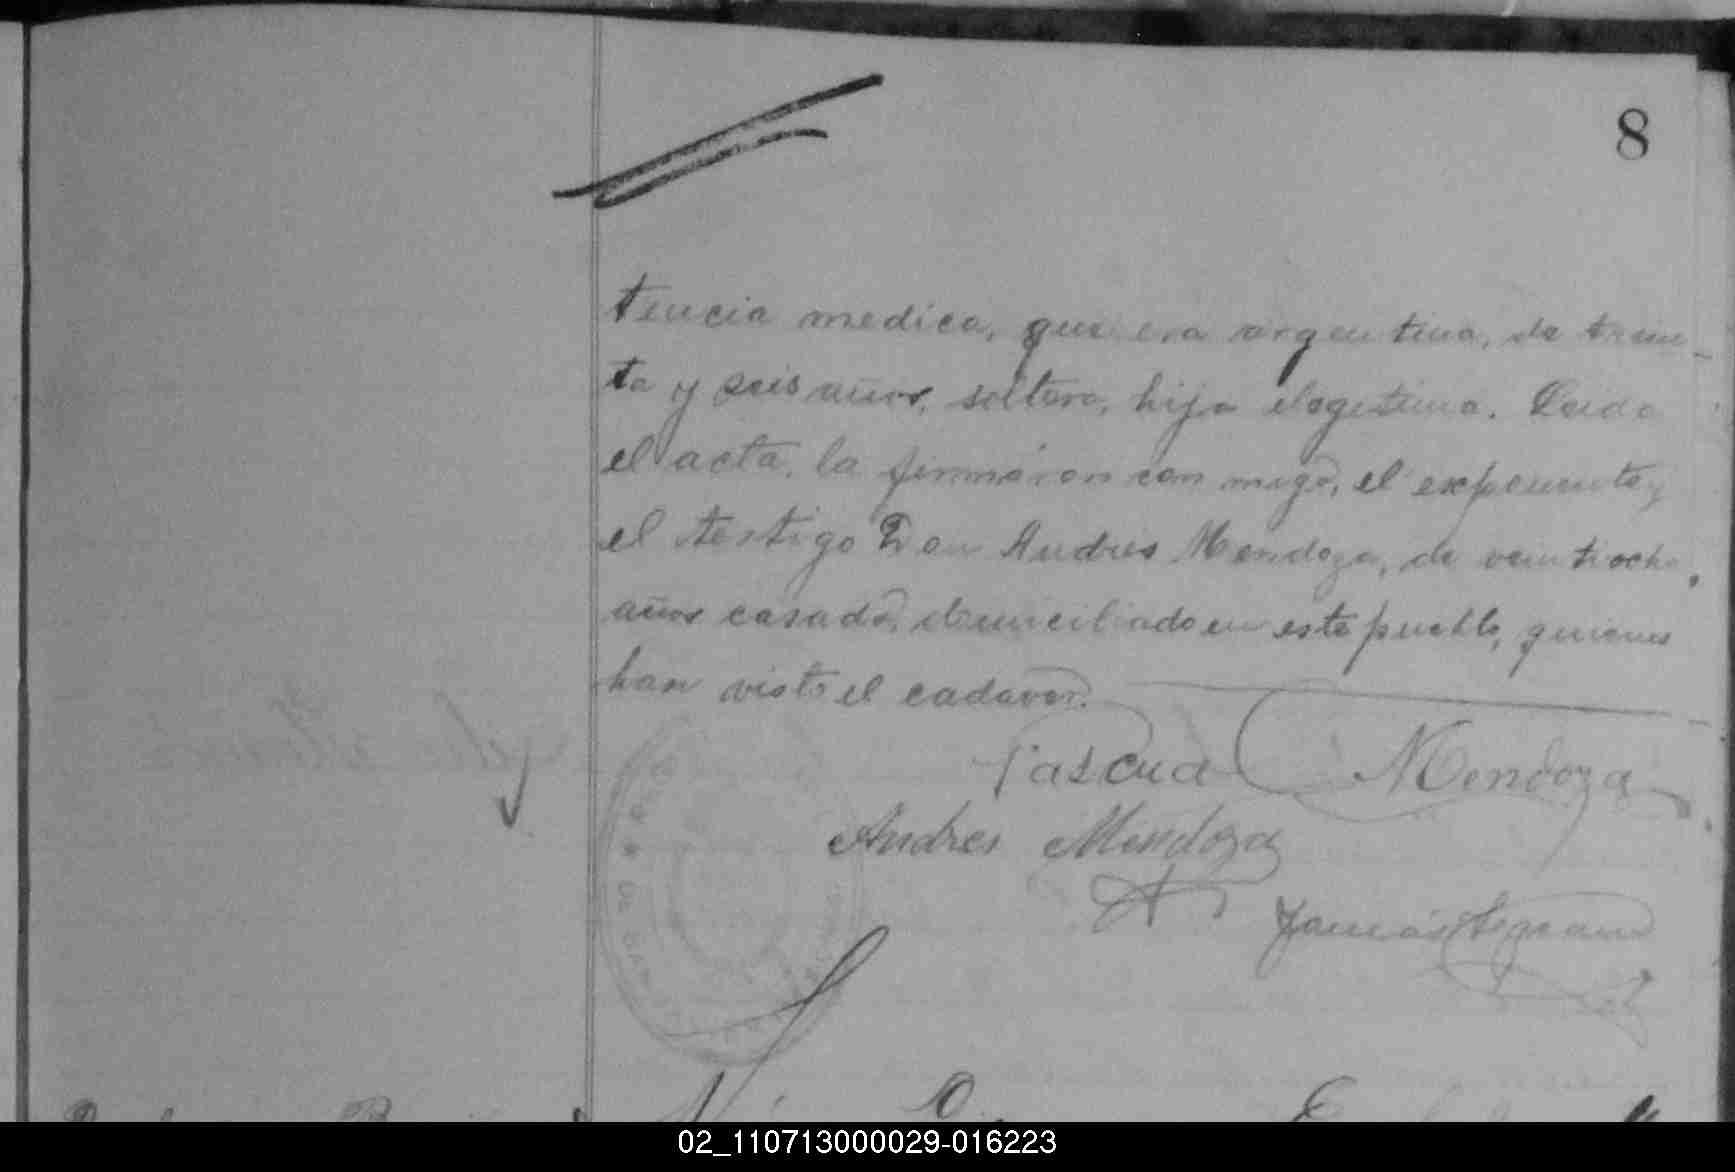 8
tencia medica, que era argentina, de trein_
ta y seis años, soltera, hija elegitima. Leida
el acta, la firmáron con migo, el exponente y
el testigo Don Andres Mendoza, de veintiocho
años casado, domiciliado en este pueblo, quienes
han visto el cadaver.
Pascual Mendoza
Andres Mendoza
02_110713000029-016223